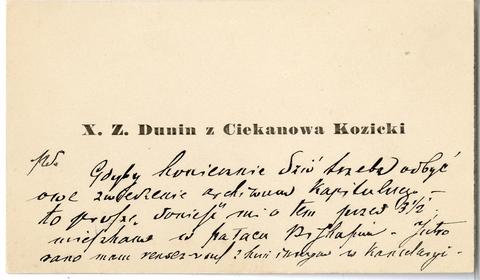 X. Z. Dunin z Ciekanowa Kozicki
Gdyby koniecznie dziś trzeba odbyć
owe zwiedzenie archiwum kapitulnego —
to proszę donieść mi o tem przed 3½;
mieszkam w pałacu Biskupim. Jutro
rano mam i w kancelaryi.